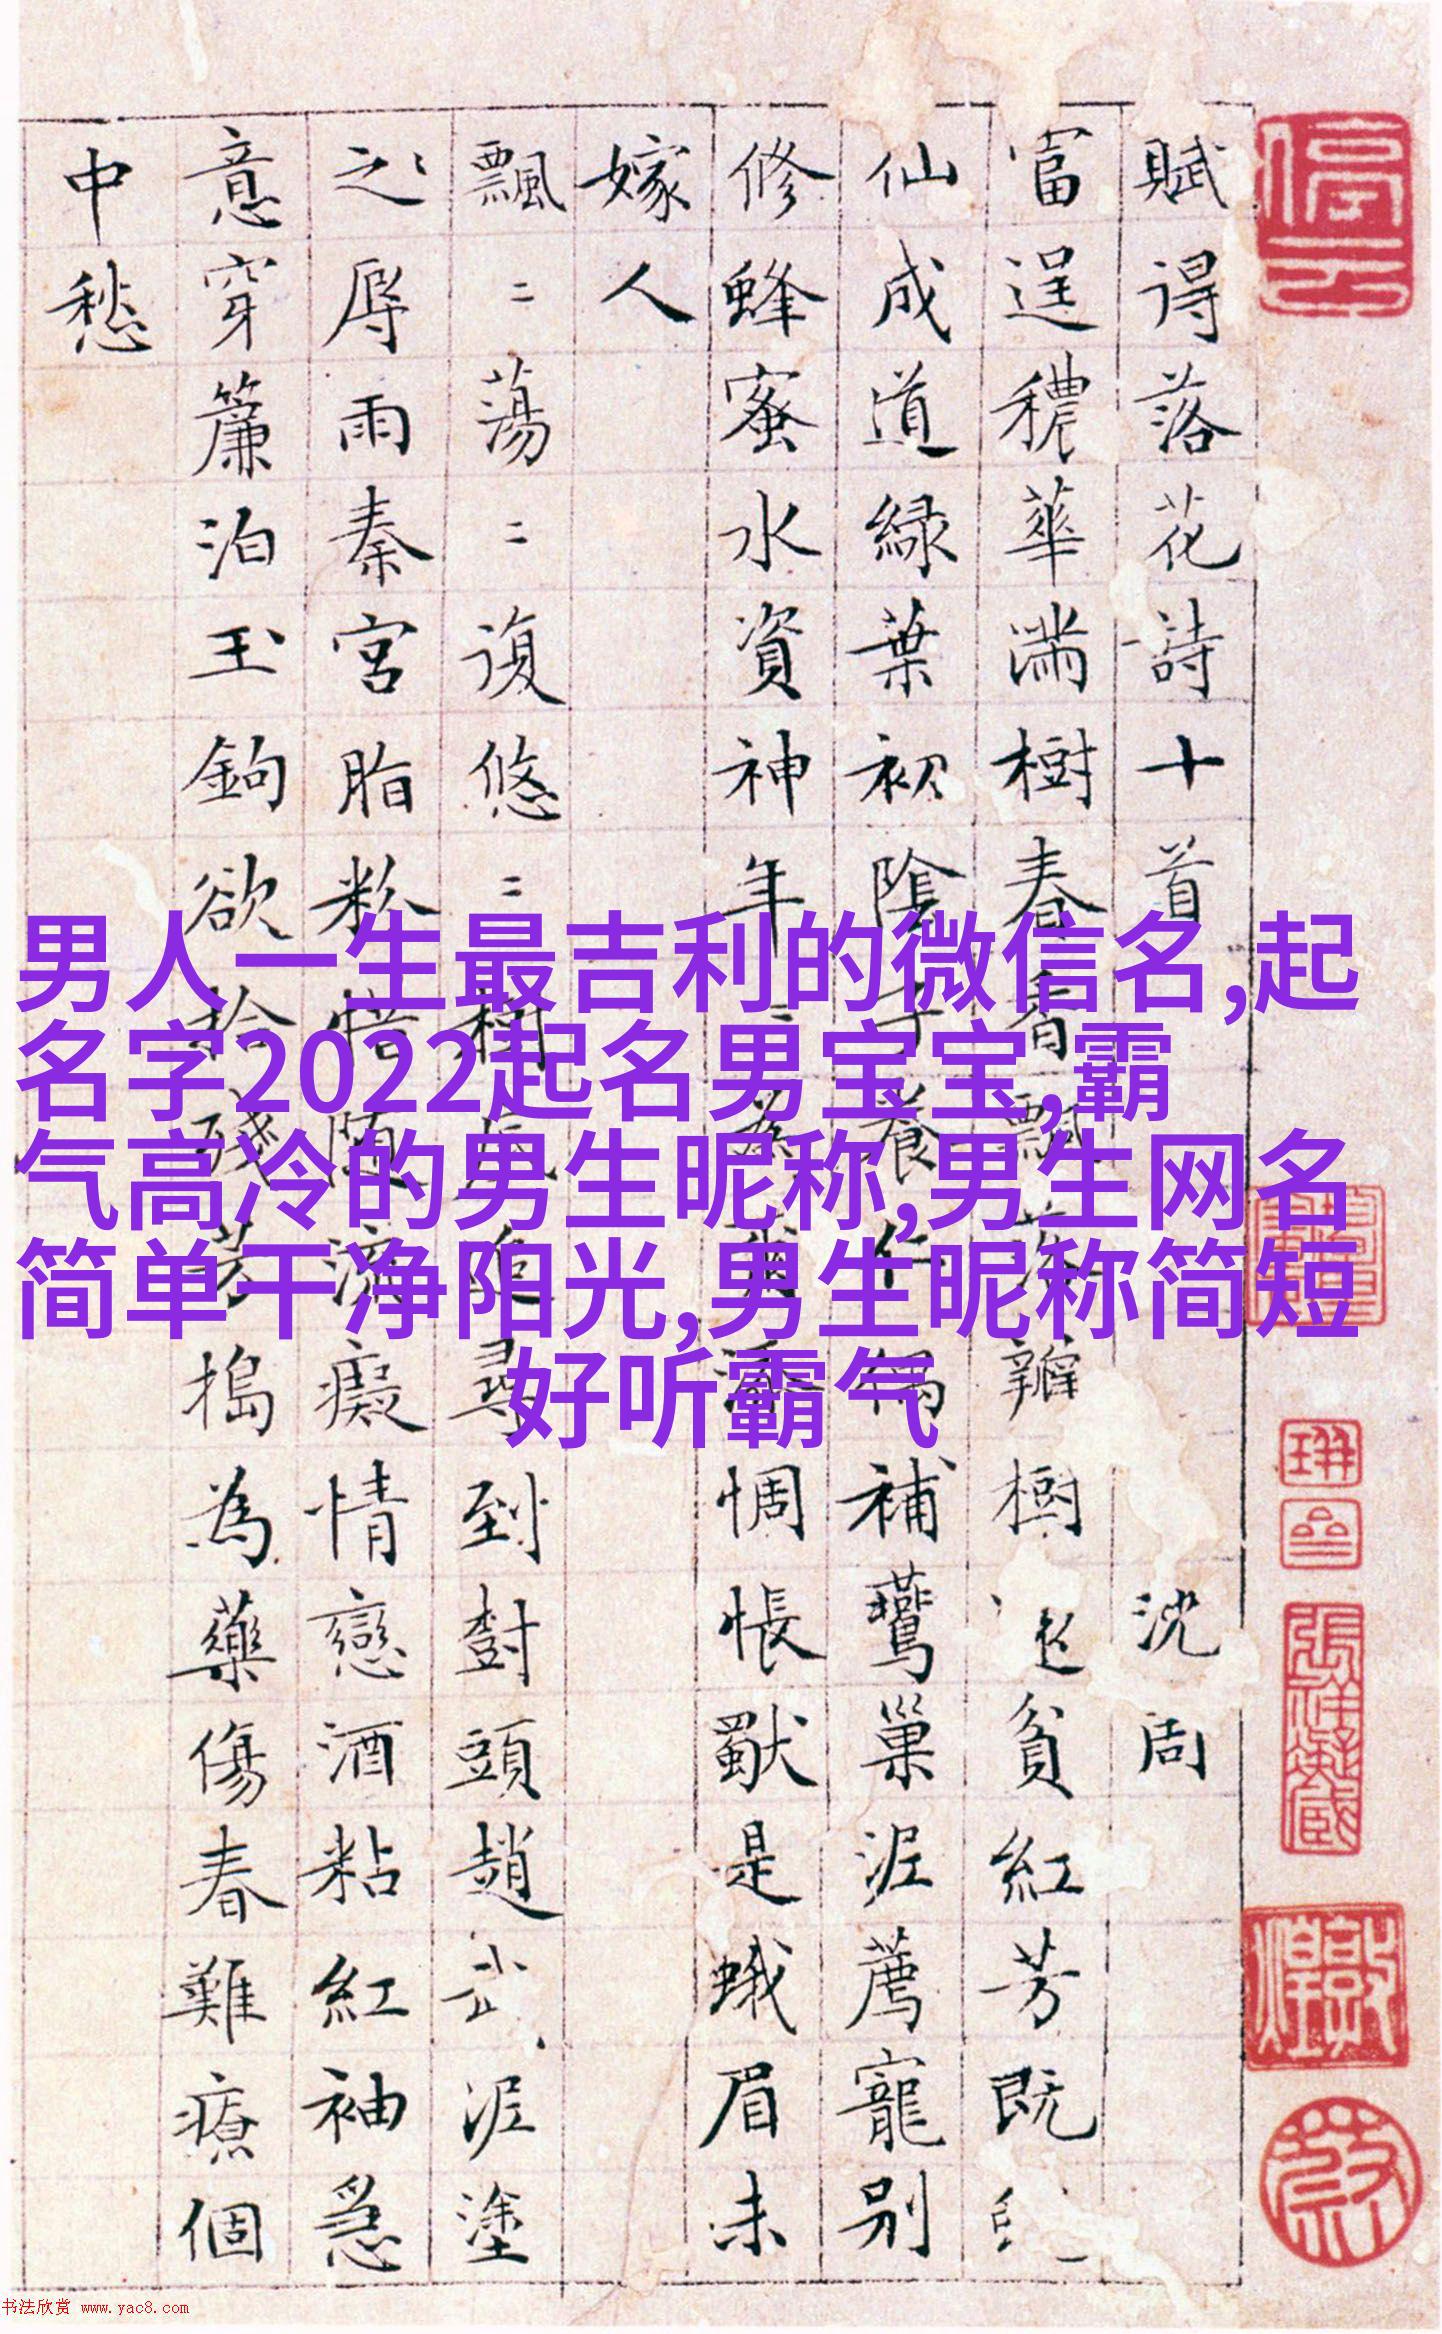 賦得落花詩十首 沈周
富逞穠華滿樹春香飄落瓣樹貧紅芳既
仙成道綠葉初陰子養仁偶補鶯巢泥薦寵別
修蜂蜜水資神年為爾添惆悵獨是蛾眉未
嫁人
飄〻蕩〻復悠〻樹底追尋到樹頭趙武泥塗
之辱雨秦宮脂粉惜隨流癡情戀酒粘紅袖急
意穿簾泊玉鉤欲拾殘芳搗為藥傷春難療個
中愁
男人一生最吉利的微信名,起
名字2022起名男宝宝,霸
气高冷的男生昵称,男生网名
简单干净阳光,男生昵称简短
好听霸气
书法欣赏 www.yac8.com